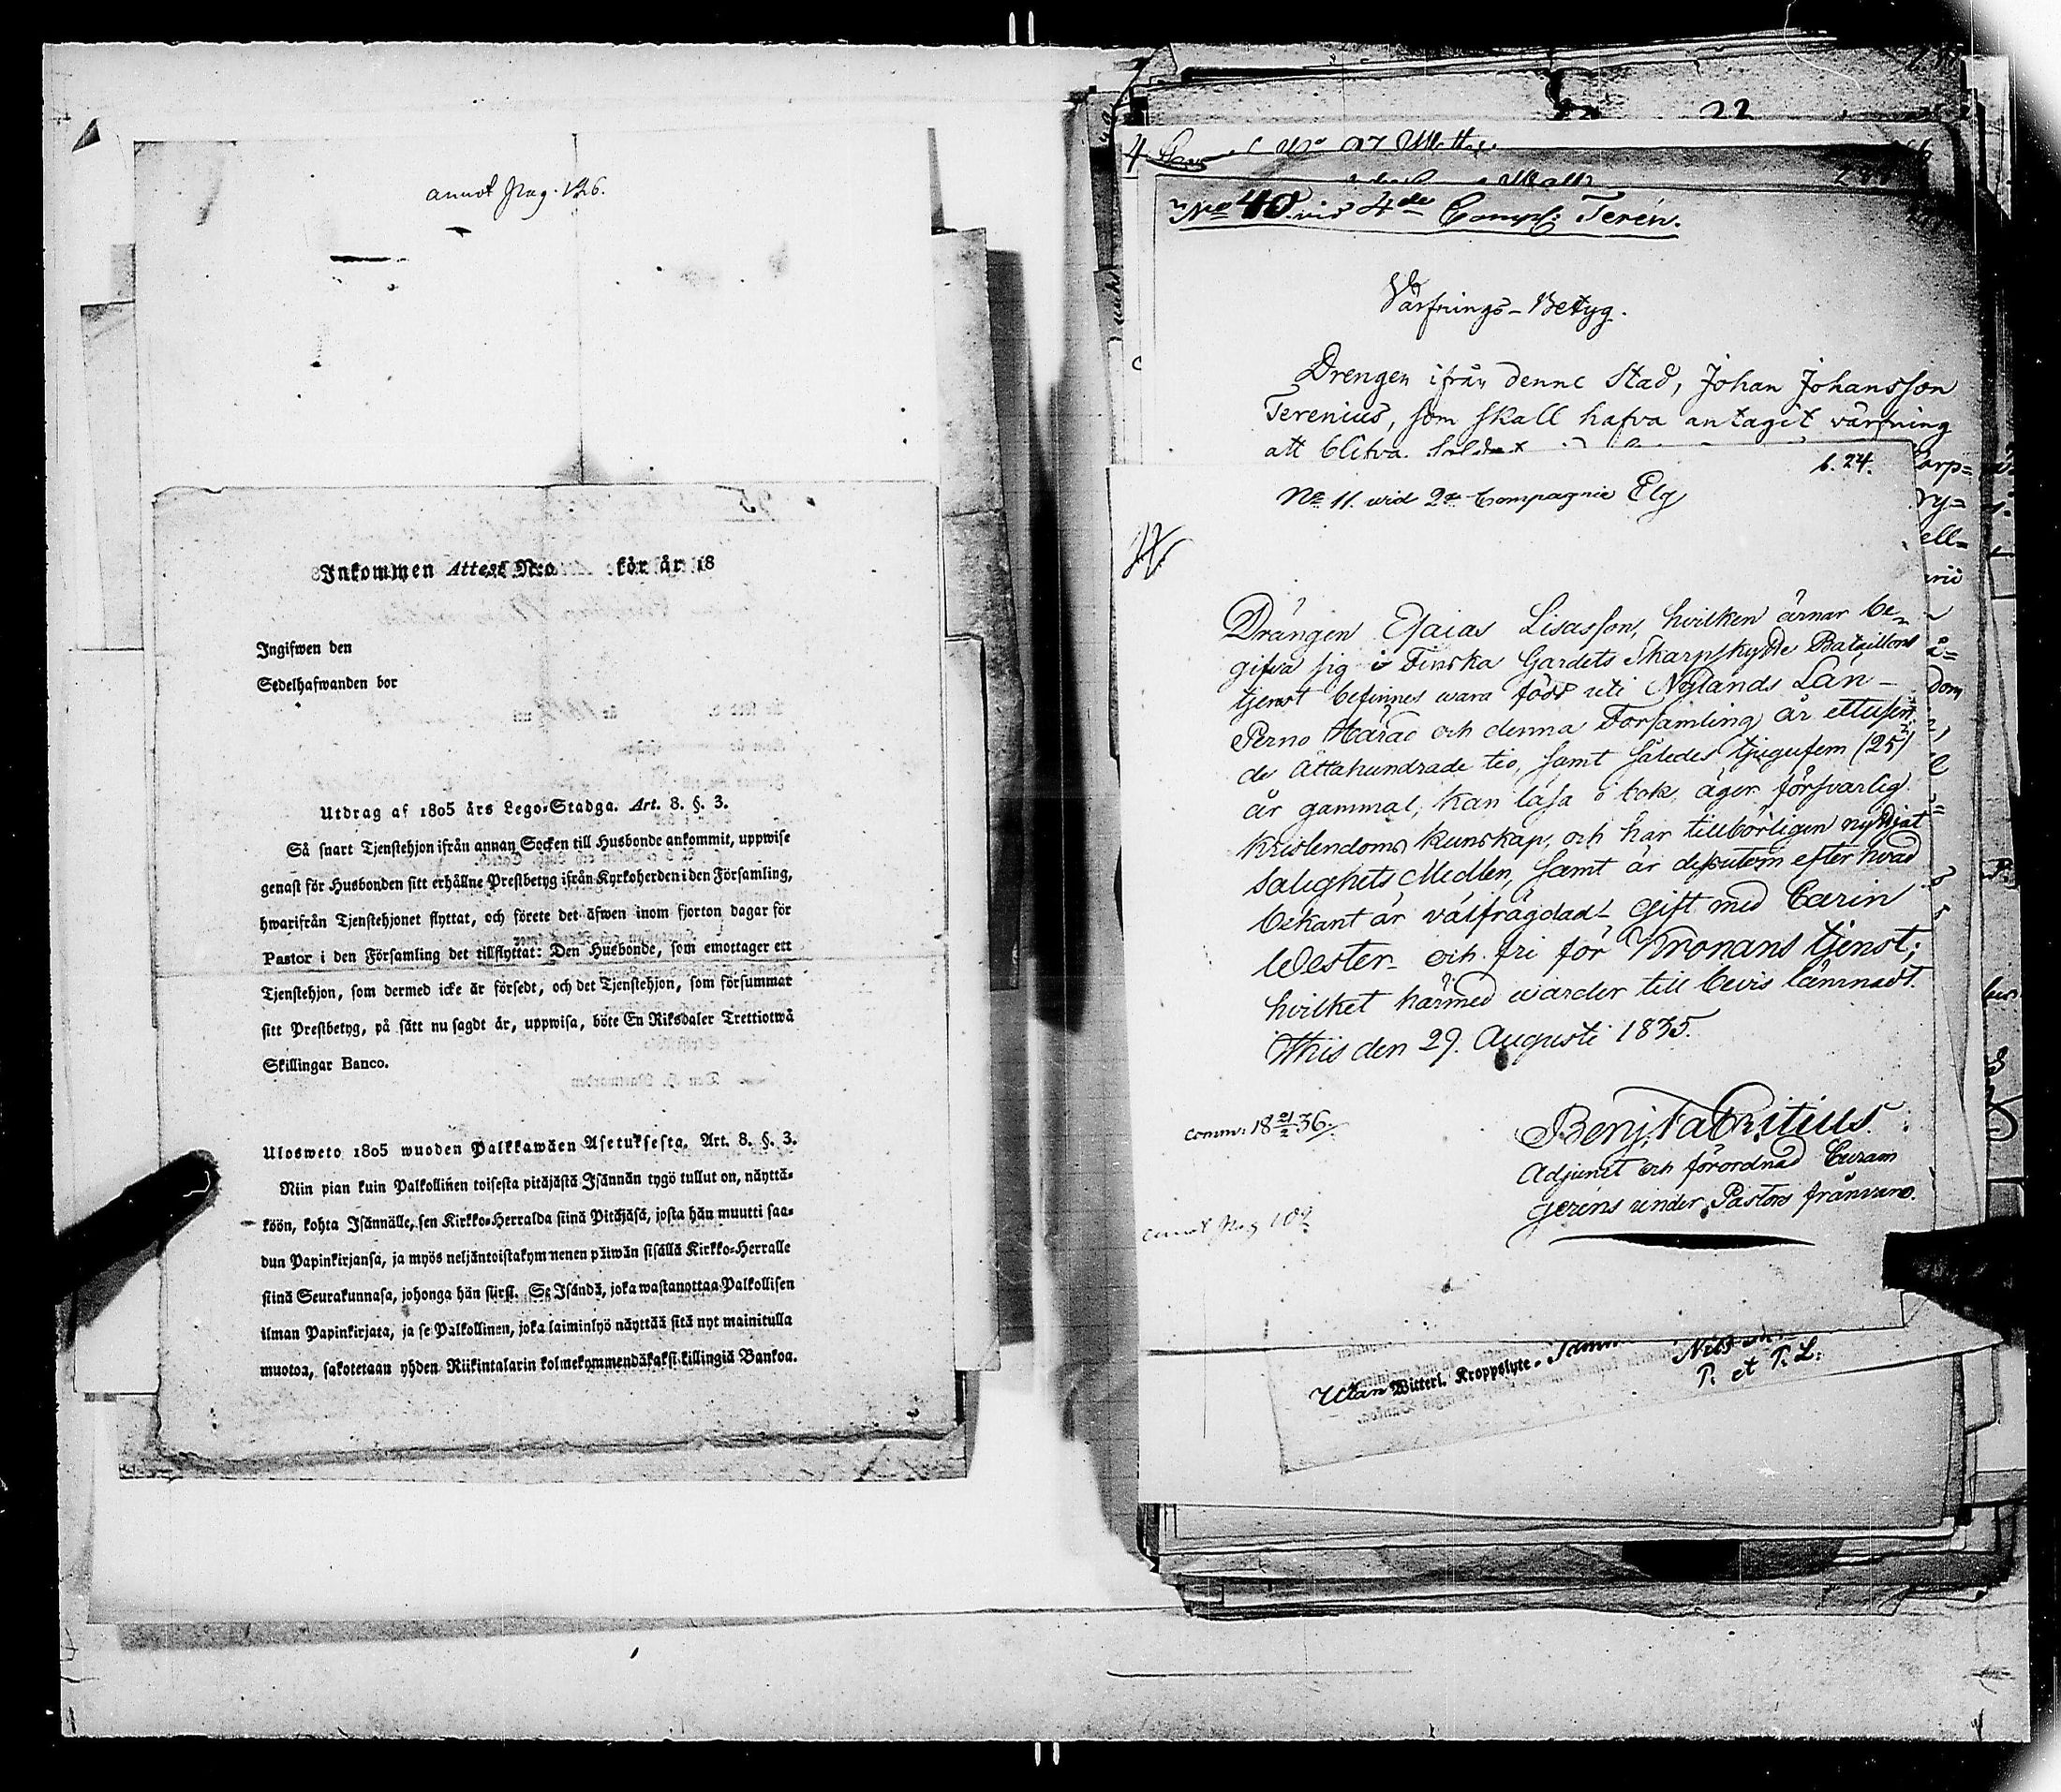 annot pag. 126.
Inkommen Attest N:o för år 18
Ingifwen den
Sedelhafwanden bor
Utdrag af 1805 års Lego-Stadga. Art. 8. §. 3.
Så snart Tjenstehjon ifrån annan Socken till Husbonde ankommit, uppwise
genast för Husbonden sitt erhållne Prestbetyg ifrån Kyrkoherden i den Församling,
hwarifrån Tjenstehjonet flyttat, och förete det äfwen inom fjorton dagar för
Pastor i den Församling det tillflyttat: Den Husbonde, som emottager ett
Tjenstehjon, som dermed icke är försedt, och det Tjenstehjon, som försummar
sitt Prestbetyg, på sätt nu sagdt är, uppwisa, böte En Riksdaler Trettiotwå
Skillingar Banco.
Ulosweto 1805 wuoden Palkkawäen Asetuksesta. Art. 8. §. 3.
Niin pian kuin Palkollinen toisesta pitäjästä Isännän tygö tullut on, näyttä-
köön, kohta Isännälle, sen Kirkko-Herralda siinä Pitäjäsä, josta hän muutti saa-
dun Papinkirjansa, ja myös neljäntoistakymmenen päiwän sisällä Kirkko-Herralle
siinä Seurakunnasa, johonga hän siirsi. Se Isändä, joka wastanottaa Palkollisen
ilman Papinkirjata, ja se Palkollinen, joka laiminlyö näyttää sitä nyt mainitulla
muotoa, sakotetaan yhden Riikintalarin kolmekymmendäkaksi killingiä Bankoa.
22
No 40 vid 4de Comp: Terén.
Värfnings-Betyg.
Drengen ifrån denne Stad, Johan Johansson
Terenius, som skall hafva antagit värfning
att blifva Soldat
b. 24.
No 11. wid 2a Compagnie Elg
Drängen Esaias Lisasson, hvilken ärnar be-
gifva sig i Finska Gardets Skarpskytte Bataillons
tjenst befinnes wara född uti Nylands Län-
Perno Härad och denna Församling år ettusen
de Åttahundrade tio, samt således tjugufem (25)
år gammal, kan läsa i bok, äger försvarlig
kristendoms kunskap, och har tillbörligen nyttjat
salighets Medlen, samt är dessutom efter hvad
bekant är välfrägdad- Gift med Carin
Wester- och fri för Kronans tjenst;
hvilket härmed warder till bevis lämnadt.
Ithis den 29. Augusti 1835.
Benj. Fabritius.
Adjunct och förordnad Curam
gerens under Pastors frånvaro.
comm: 18 21/2 36.
annot pag 109
Utan Witterl. Kroppslyte.
P. et P. L: